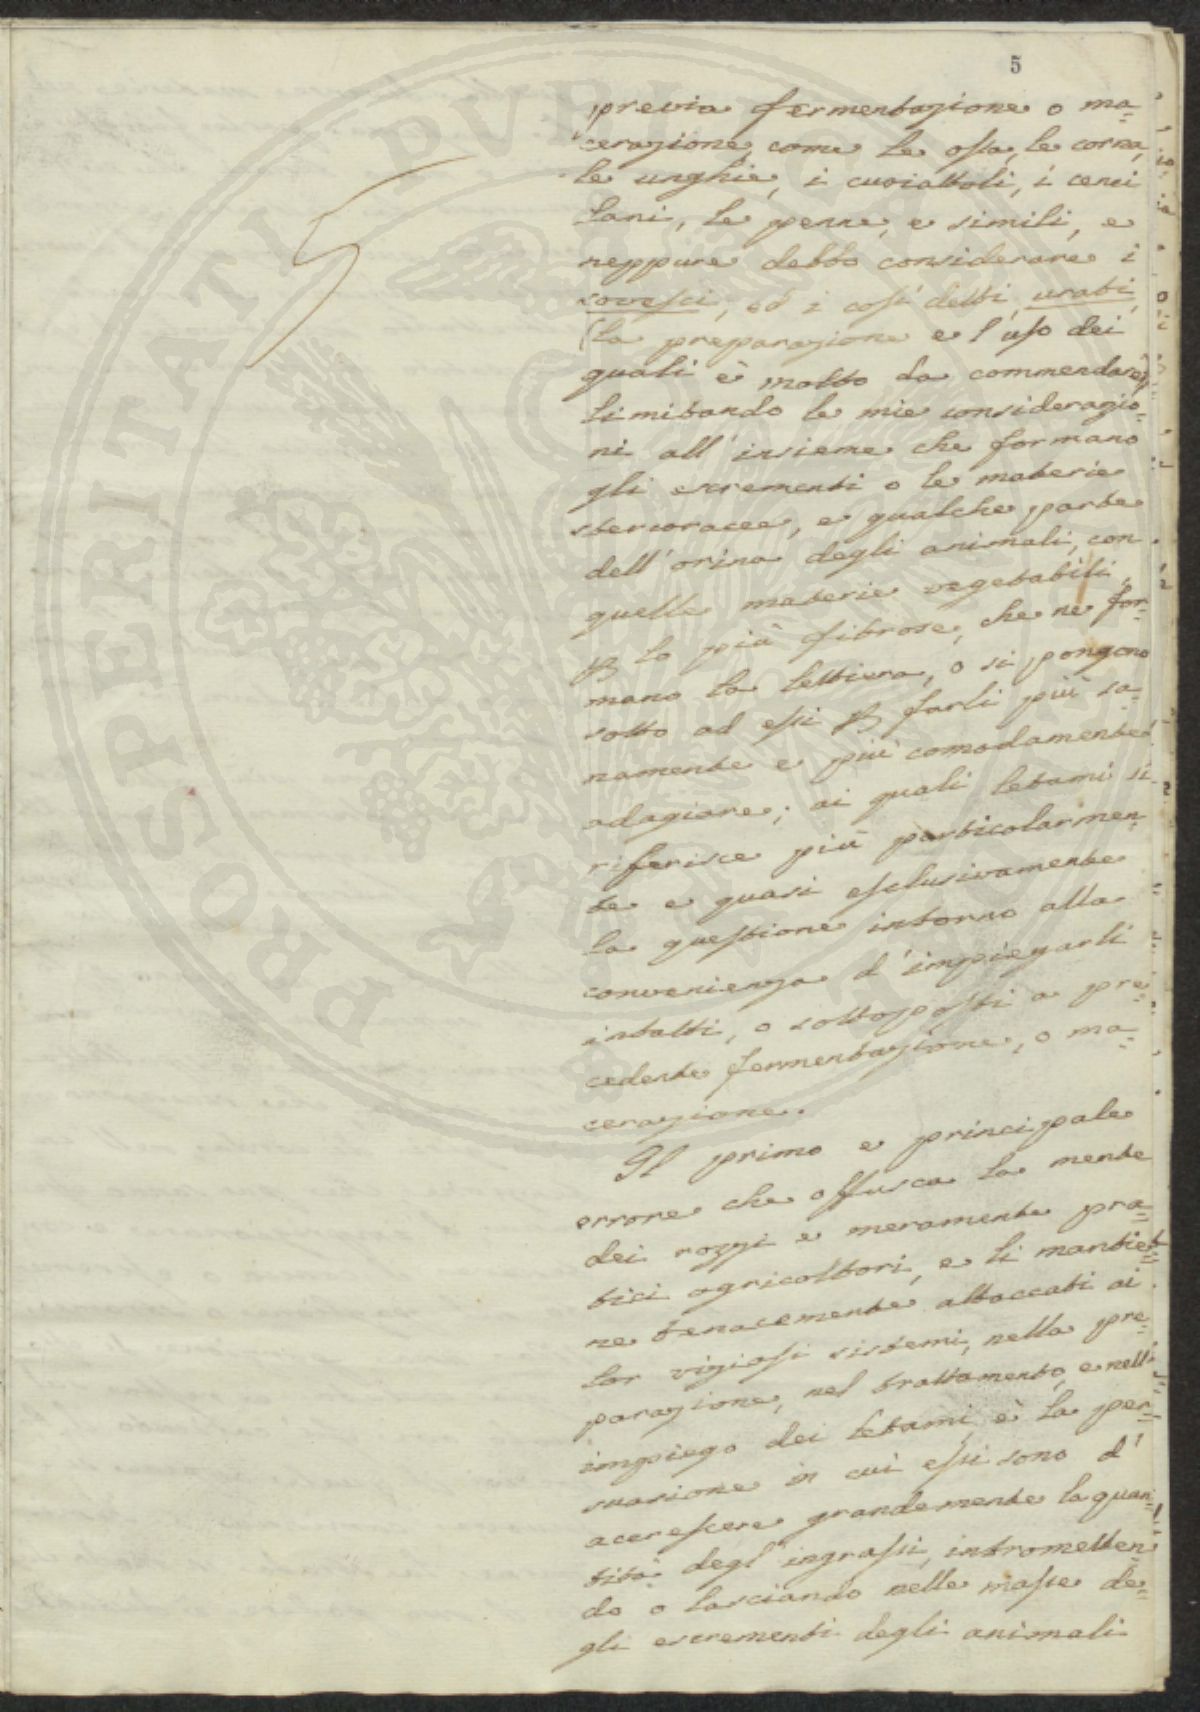 5
previa fermentazione o ma=
cerazione, come le ossa, le corna,
le unghie, i cuoiattoli, i cenci
lani, le penne, e simili, e
neppure debbo considerare i
sovesci, ed i così detti urati,
(la preparazione e l'uso dei
quali è molto da commendare)
limitando le mie considerazio=
ni all'insieme che formano
gli escrementi o le materie
stercoracee, e qualche parte
dell'orina degli animali, con
quelle materie vegetabili,
p lo più fibrose, che ne for=
mano la lettiera, o si pongono
sotto ad essi p farli più sa=
namente e più comodamente
adagiare; ai quali letami si
riferisce più particolarmen=
te e quasi esclusivamente
la questione intorno alla
convenienza d'impiegarli
intatti, o sottoposti a pre=
cedente fermentazione, o ma=
cerazione.
Il primo e principale
errore che offusca la mente
dei rozzi e meramente pra=
tici agricoltori, e li mantie=
ne tenacemente attaccati ai
lor viziosi sistemi, nella pre=
parazione, nel trattamento, e nell'
impiego dei letami, è la per=
suasione in cui essi sono d'
acrescere grandemente la quan=
tità degl'ingrassi, intrometten=
do o lasciando nelle masse de=
gli escrementi degli animali
PROSPERITATI PVBLICAE